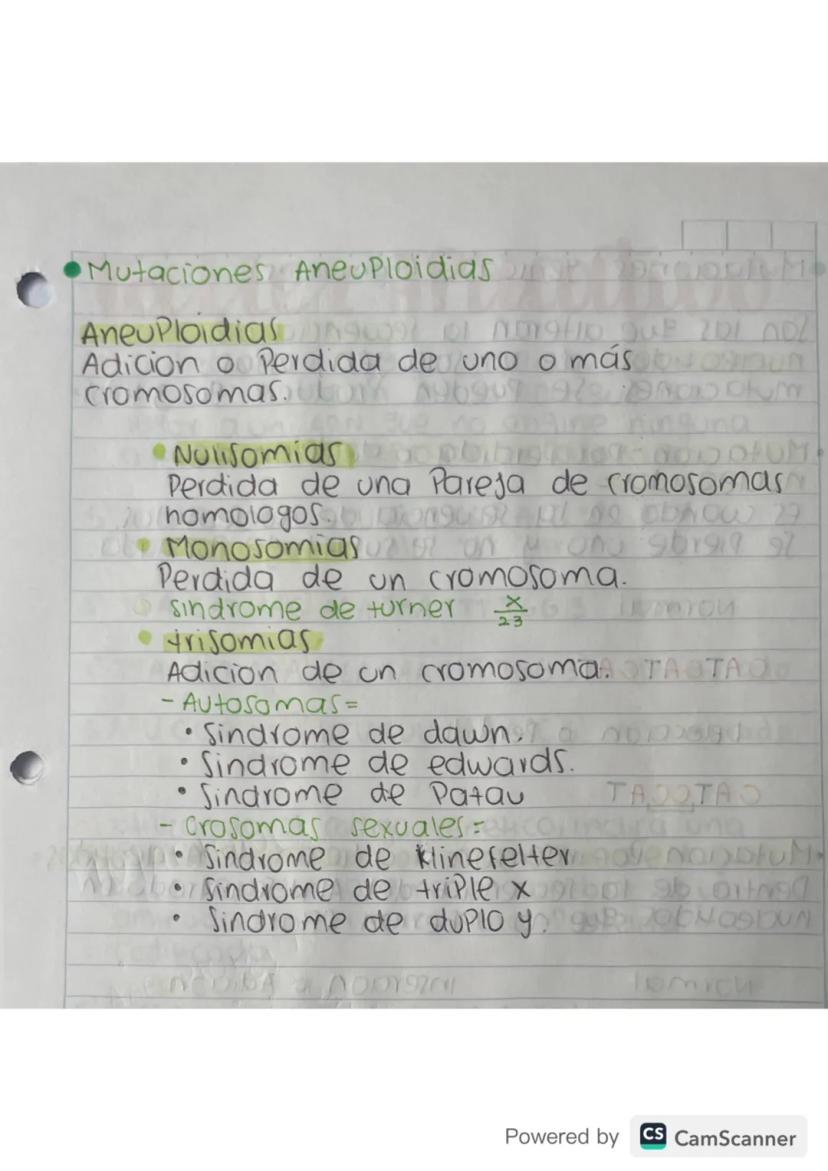 • Mutaciones Aneuploidias
Aneuploidias
Adicion o Perdida de uno o más
cromosomas.
• Nulisomias
Perdida de una Pareja de cromosomas
homologos.
• Monosomias
Perdida de un cromosoma.
sindrome de turner X/23
• trisomias
Adicion de un cromosoma.
- Autosomas=
• Sindrome de dawn.
• Sindrome de edwards.
• Sindrome de Patau
- Crosomas sexuales=
• Sindrome de klinefelter
• Sindrome de triple x
• Sindrome de duplo y.
Powered by CS CamScanner